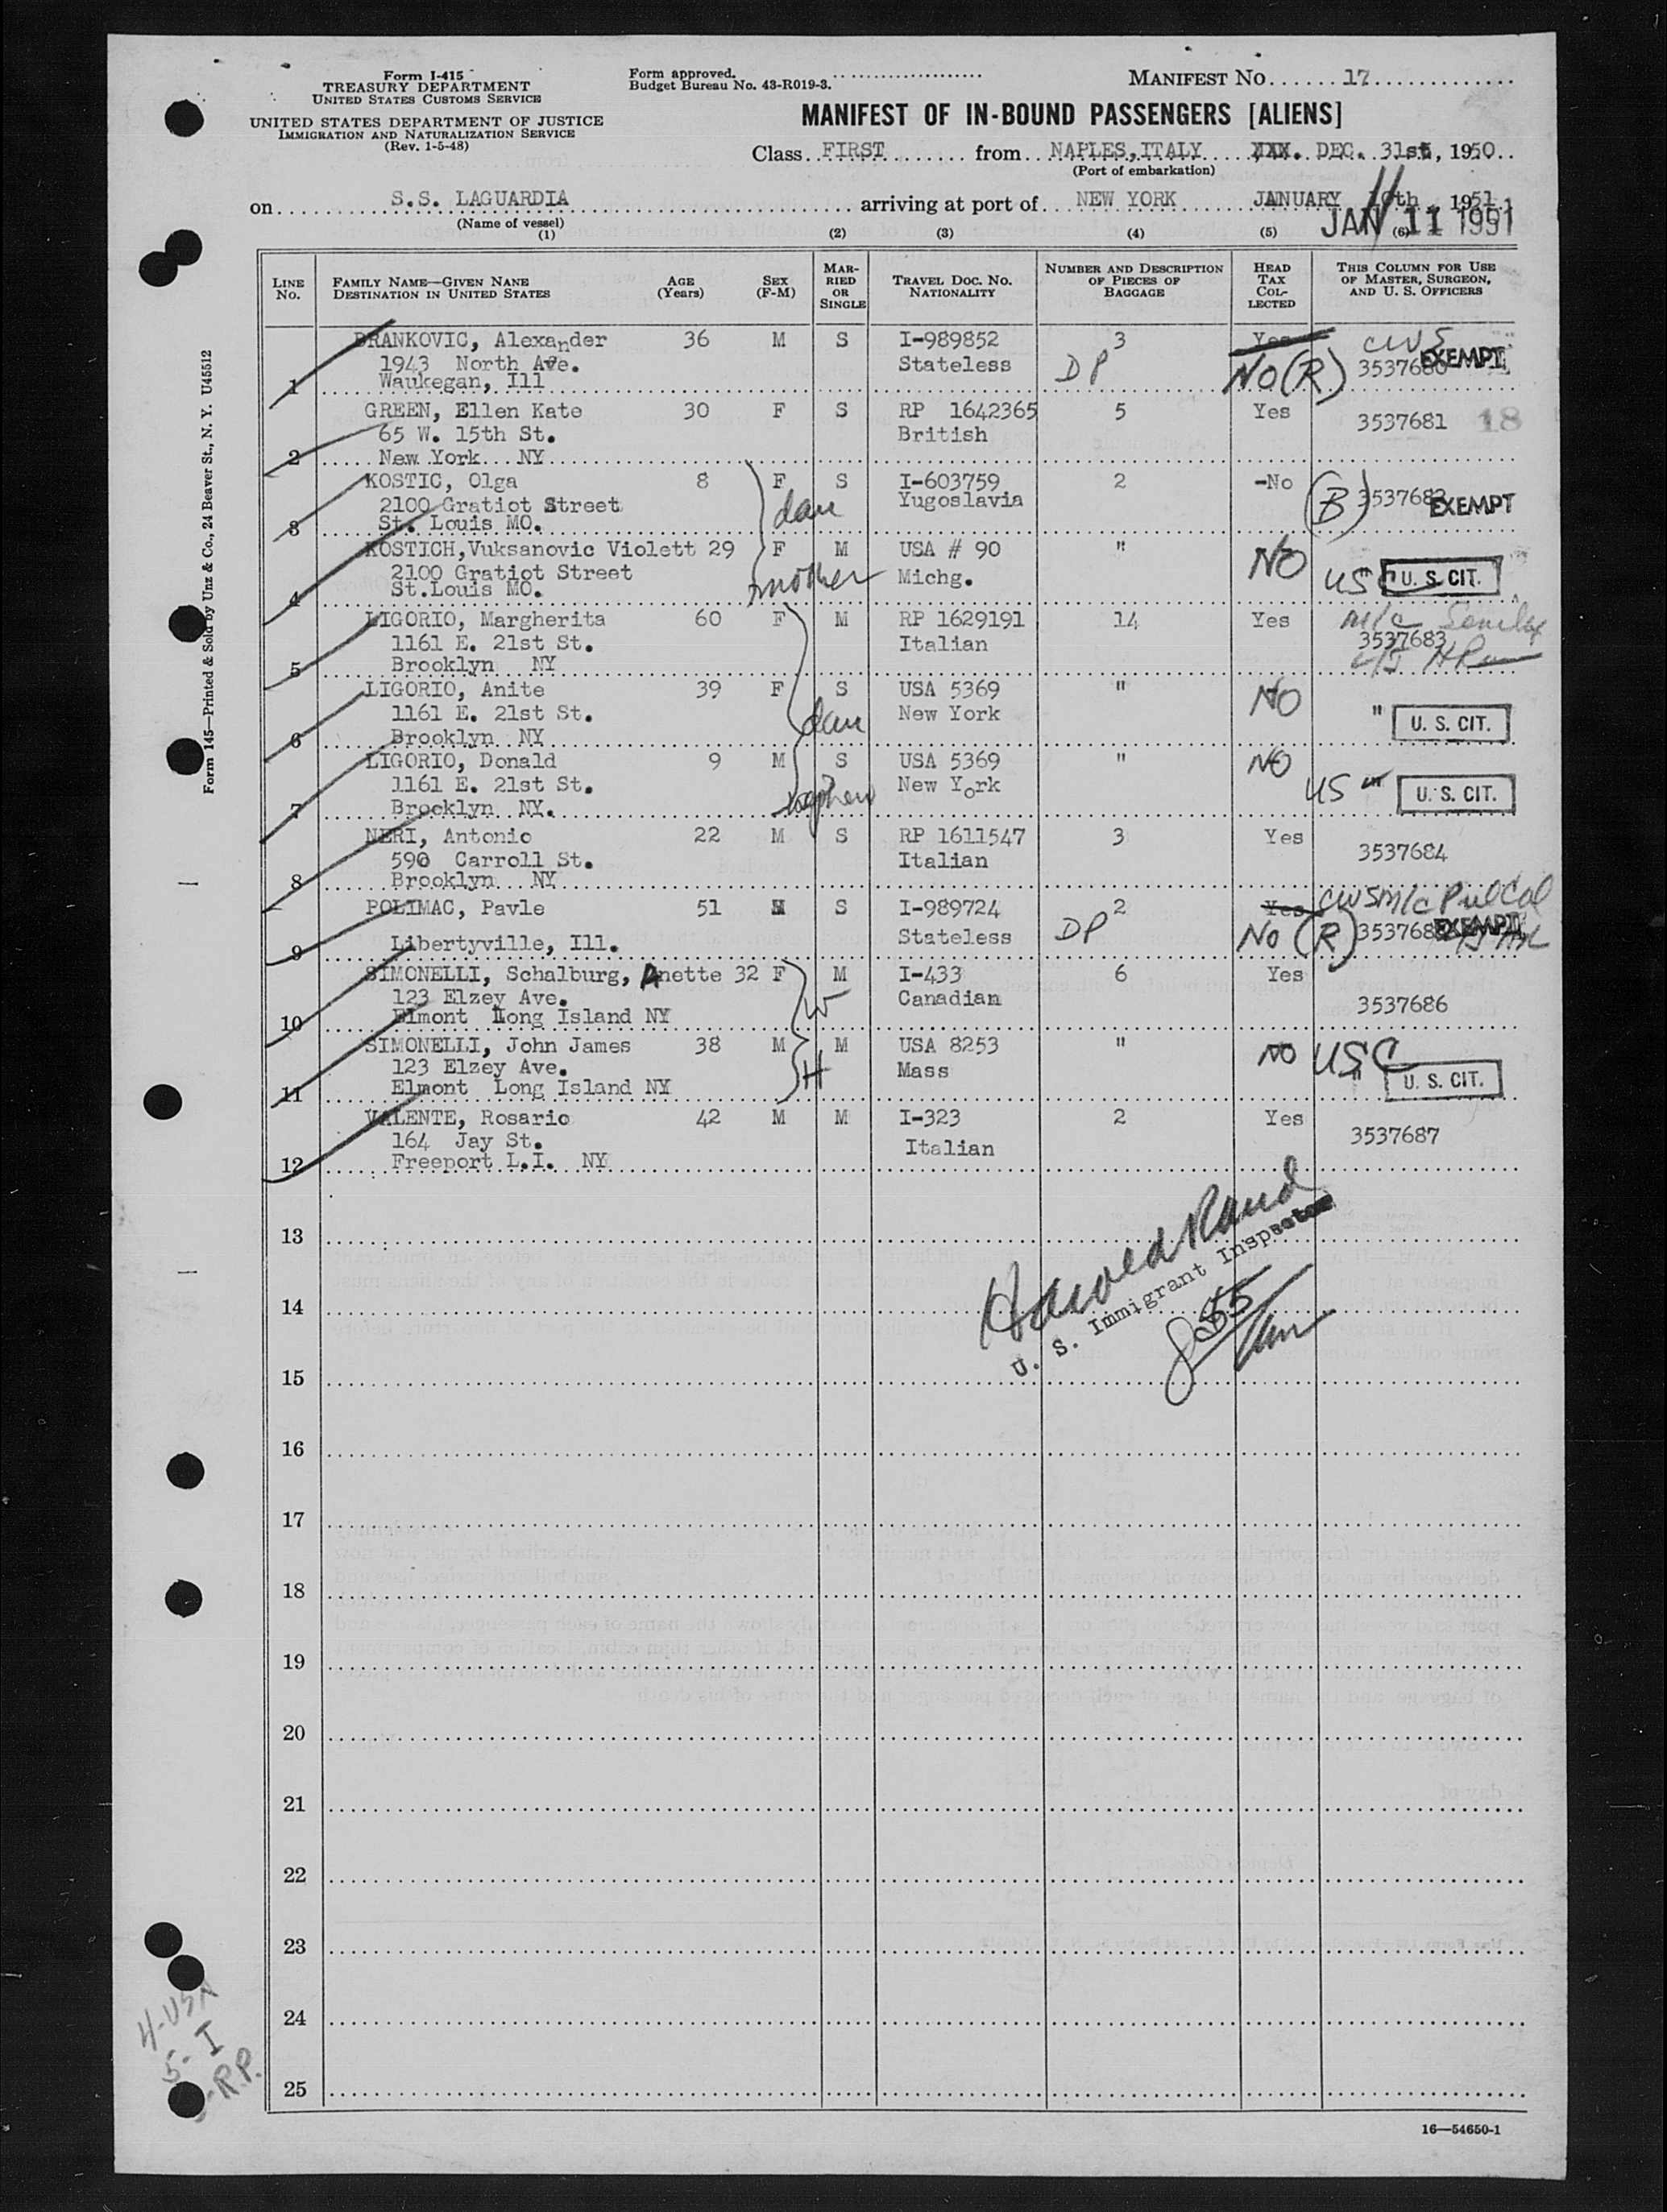 Form I-415
TREASURY DEPARTMENT
UNITED STATES CUSTOMS SERVICE
UNITED STATES DEPARTMENT OF JUSTICE
IMMIGRATION AND NATURALIZATION SERVICE
(Rev. 1-5-48)
Form approved.
Budget Bureau No. 43-R019-3.
MANIFEST NO. 17
MANIFEST OF IN-BOUND PASSENGERS [ALIENS]
Class FIRST from NAPLES, ITALY XXX. DEC. 31st, 1950
(Port of embarkation)
on S.S. LAGUARDIA arriving at port of NEW YORK JANUARY 10th 11, 1951
(Name of vessel) JAN 11 1951
(1) (2) (3) (4) (5) (6)
LINE No. FAMILY NAME—GIVEN NANE DESTINATION IN UNITED STATES AGE (Years) SEX (F-M) MARRIED OR SINGLE TRAVEL DOC. NO. NATIONALITY NUMBER AND DESCRIPTION OF PIECES OF BAGGAGE HEAD TAX COLLECTED THIS COLUMN FOR USE OF MASTER, SURGEON, AND U. S. OFFICERS
BRANKOVIC, Alexander 36 M S I-989852 3 Yes CWS
1943 North Ave. Stateless DP No (R) 3537680 EXEMPT
1 Waukegan, Ill
GREEN, Ellen Kate 30 F S RP 1642365 5 Yes 3537681 18
65 W. 15th St. British
2 New York NY
KOSTIC, Olga 8 F S I-603759 2 -No
2100 Gratiot Street dau Yugoslavia (B) 3537682 EXEMPT
3 St. Louis MO.
KOSTICH, Vuksanovic Violett 29 F M USA # 90 " NO
2100 Gratiot Street mother Michg. USC " U. S. CIT.
4 St.Louis MO.
LIGORIO, Margherita 60 F M RP 1629191 14 Yes M/C
1161 E. 21st St. Italian 3537683
5 Brooklyn NY
LIGORIO, Anite 39 F S USA 5369 " NO
1161 E. 21st St. dau New York " U. S. CIT.
6 Brooklyn NY
LIGORIO, Donald 9 M S USA 5369 " NO
1161 E. 21st St. nephew New York US " U. S. CIT.
7 Brooklyn NY.
NERI, Antonio 22 M S RP 1611547 3 Yes
590 Carroll St. Italian 3537684
8 Brooklyn NY
POLIMAC, Pavle 51 M S I-989724 2 Yes CWS M/C
Stateless DP No (R) 3537685 EXEMPT
9 Libertyville, Ill.
SIMONELLI, Schalburg, Anette 32 F M I-433 6 Yes
123 Elzey Ave. W Canadian 3537686
10 Elmont Long Island NY
SIMONELLI, John James 38 M M USA 8253 " NO USC
123 Elzey Ave. H Mass " U. S. CIT.
11 Elmont Long Island NY
VALENTE, Rosario 42 M M I-323 2 Yes
164 Jay St. Italian 3537687
12 Freeport L.I. NY
13
Harold Rand
U. S. Immigrant Inspector
14
15
16
17
18
19
20
21
22
23
24
25
4-USA
5-I
-R.P.
16—54650-1
Form 145—Printed & Sold by Unz & Co., 24 Beaver St., N. Y. U45512